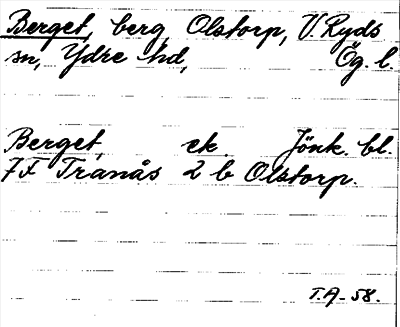 Berget, berg Olstorp, V. Ryds
sn, Ydre hd, Ög. l.
Berget ek. Jönk. bl.
7F Tranås 2 b Olstorp.
T.A-58.